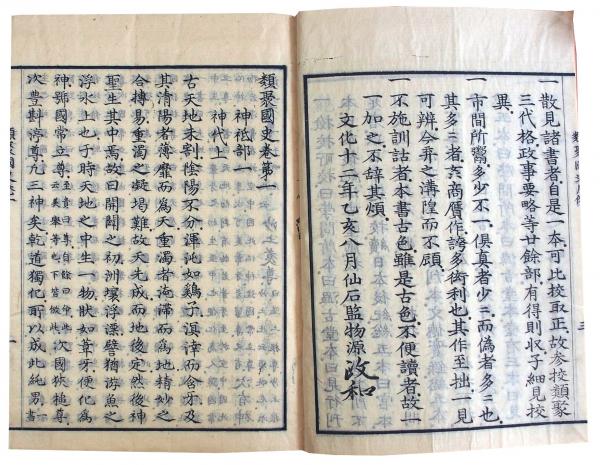 一散見諸書者自是一本可比校取正故参校類聚
三代格政事要略等廿餘部有得則収子細見校
異
一市間所鬻多少不一倶真者少二而偽者多二也
其多二者奸商贋作誇多術利也其作至拙一見
可辨今弃之溝隍而不顧
一不施訓詁者本書古色雖是古色不便讀者故一
一加之不辞其煩
文化十二年乙亥八月仙石監物源政和
類聚國史卷第一
神祇部一
神代上
古天地未剖陰陽不分渾沌如鷄子溟涬而含牙及
其清陽者薄靡而爲天重濁者淹滞而爲地精妙之
合搏易重濁之凝場難故天先成而地後定然後神
聖生其中焉故曰開闢之初洲壤浮漂譬猶游魚之
浮水上也于時天地之中生一物狀如葦牙便化爲
神號國常立尊次國狹槌尊
次豊斟渟尊凡三神矣乾道獨化所以成此純男